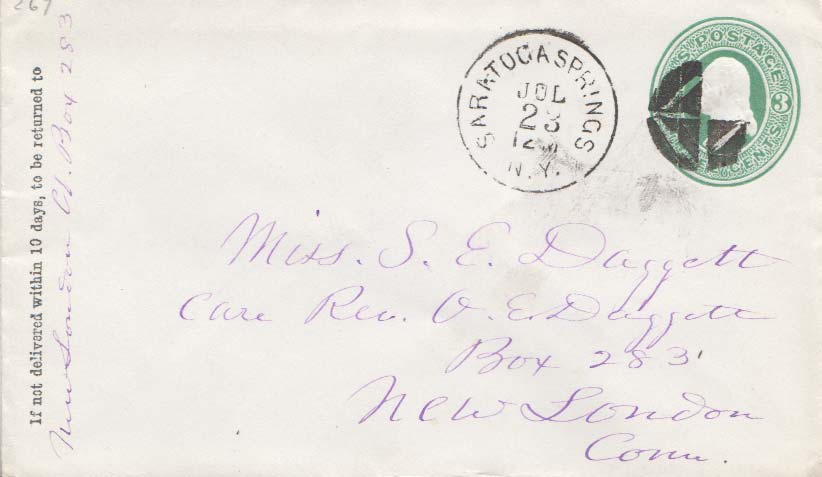 267
If not delivered within 10 days, to be returned to
New London Ct. Box 283
SARATOGA SPRINGS
JUL
23
12M
N.Y.
U.S. POSTAGE
3
CENTS
Miss. S. E. Daggett
Care Rev. O. E. Daggett
Box 283
New London
Conn.